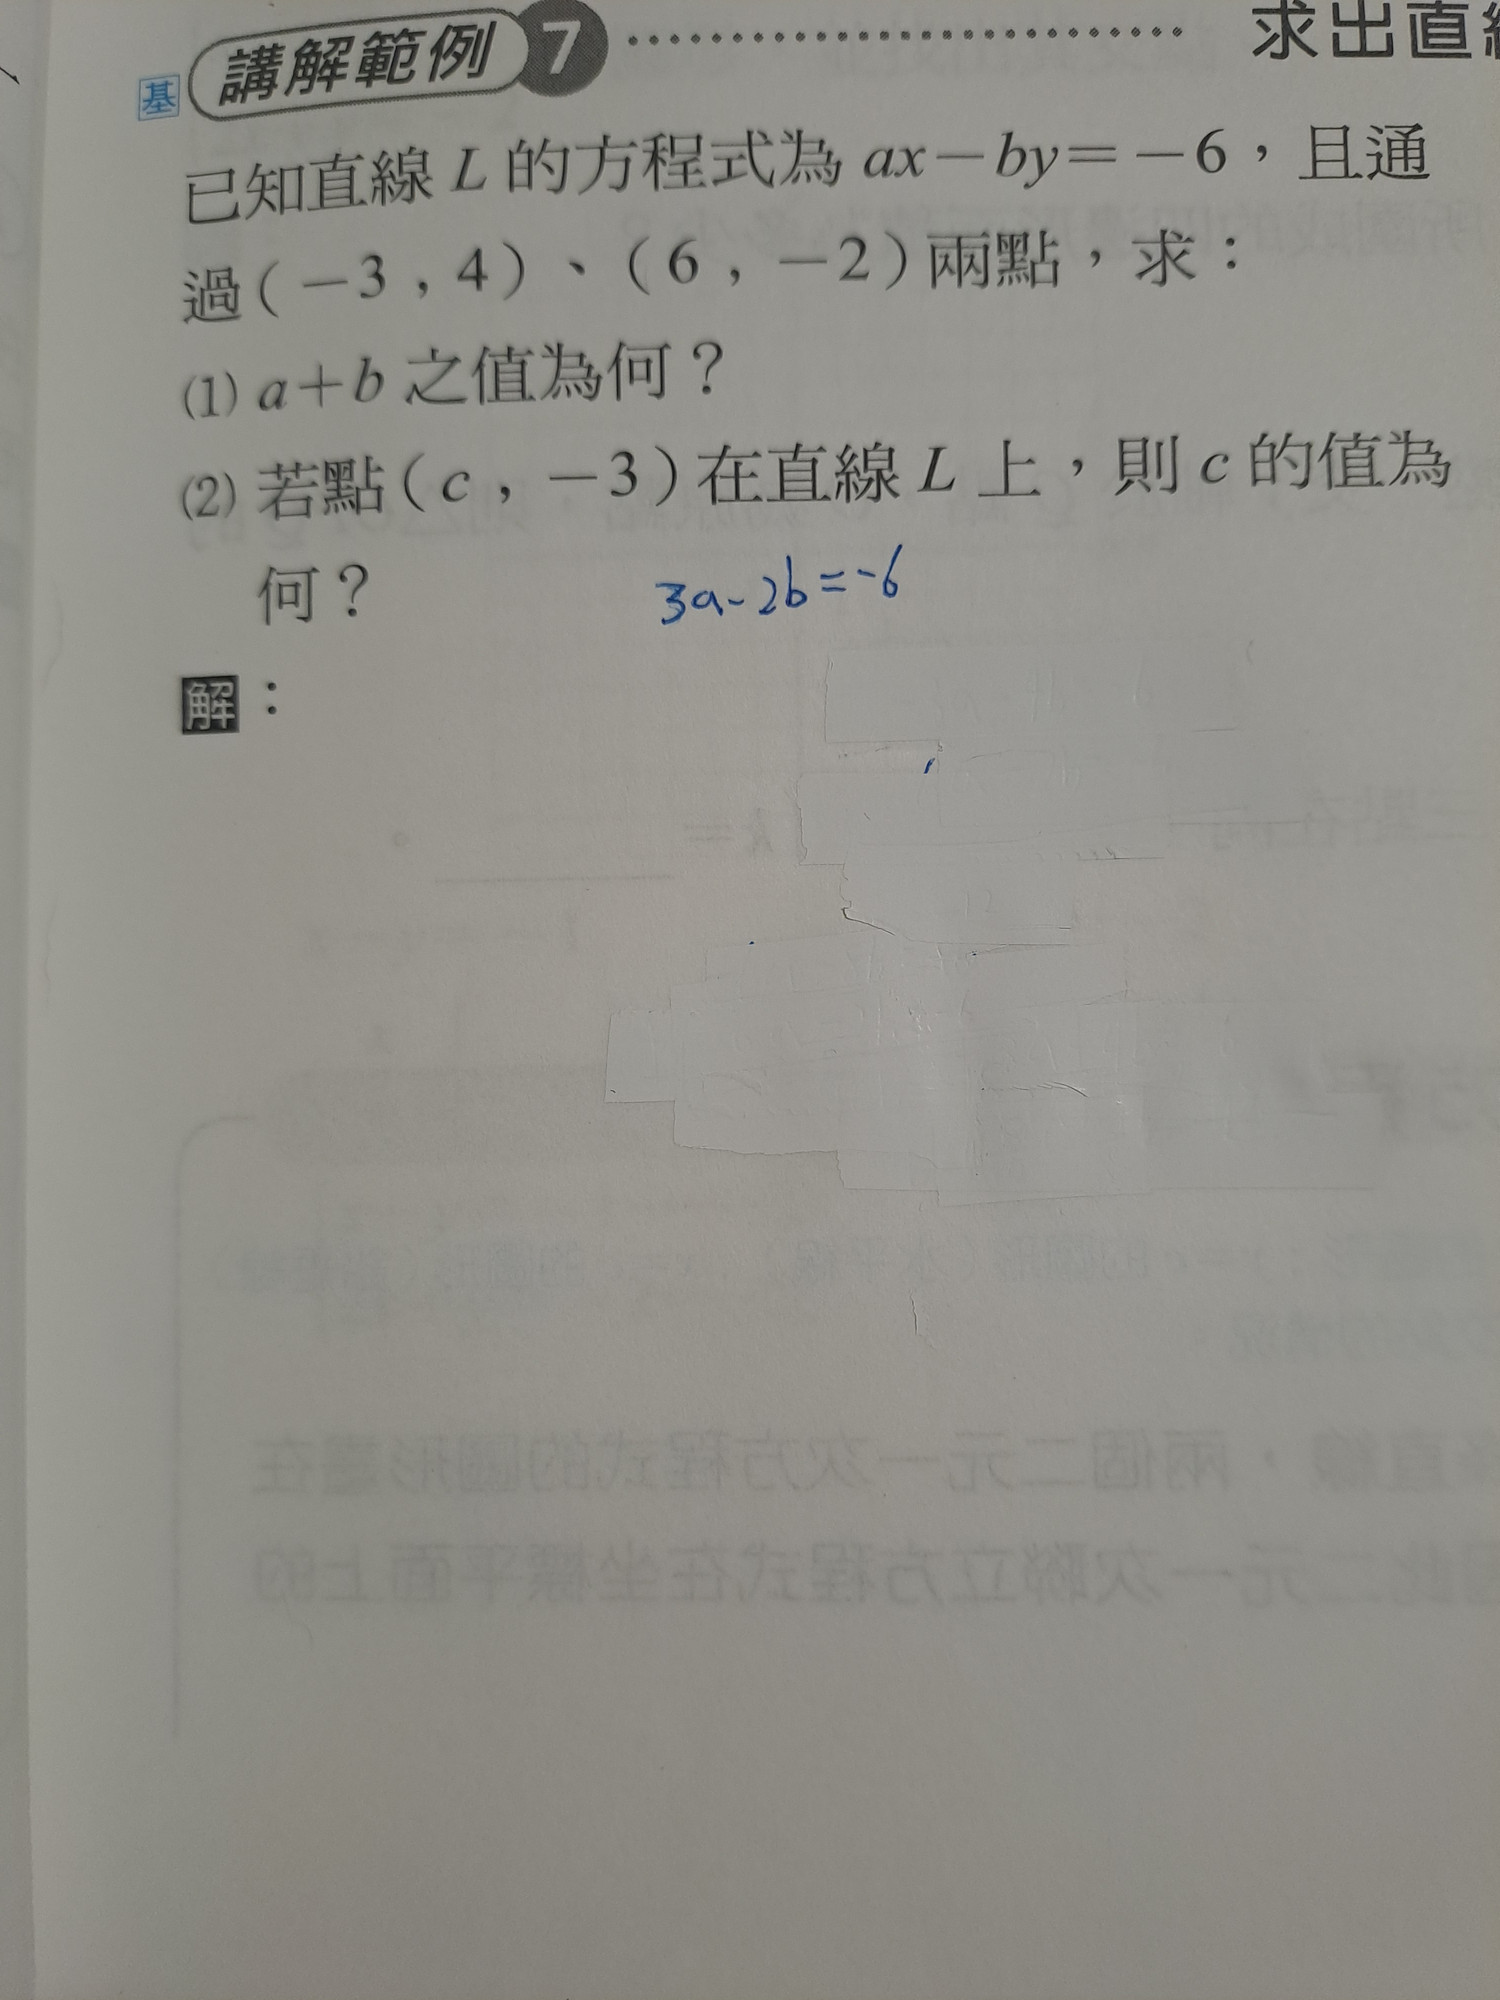 基 講解範例 7 求出直
已知直線 L 的方程式為 ax－by＝－6，且通
過(－3，4)、(6，－2)兩點，求：
(1) a＋b 之值為何？
(2) 若點(c，－3)在直線 L 上，則 c 的值為
何？
3a-2b=-6
解：